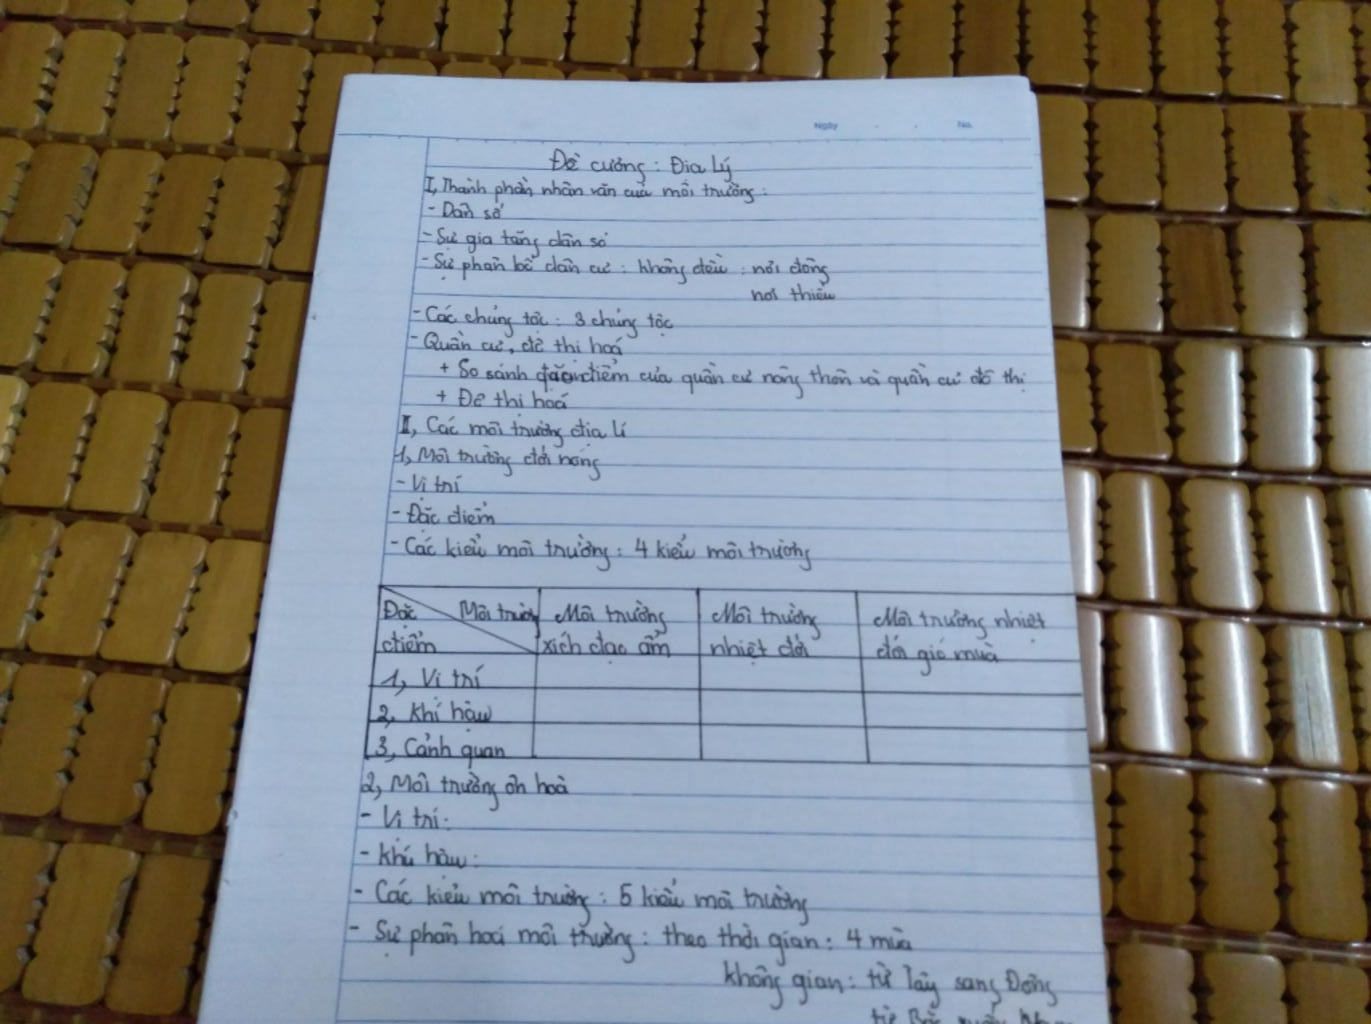 Ngày . . No.
Đề cương : Địa Lý
I, Thành phần nhân văn của môi trường :
- Dân số
- Sự gia tăng dân số
- Sự phân bố dân cư : không đều : nơi đông
nơi thiếu
- Các chủng tộc : 3 chủng tộc
- Quần cư, đô thị hoá
+ So sánh đặc điểm của quần cư nông thôn và quần cư đô thị
+ Đô thị hoá
II, Các môi trường địa lí
1, Môi trường đới nóng
- Vị trí
- Đặc điểm
- Các kiểu môi trường : 4 kiểu môi trường
Đặc điểm Môi trường
Môi trường xích đạo ẩm
Môi trường nhiệt đới
Môi trường nhiệt đới gió mùa
1, Vị trí
2, Khí hậu
3, Cảnh quan
2, Môi trường ôn hoà
- Vị trí :
- Khí hậu :
- Các kiểu môi trường : 5 kiểu môi trường
- Sự phân hoá môi trường : theo thời gian : 4 mùa
không gian : từ Tây sang Đông
từ Bắc xuống